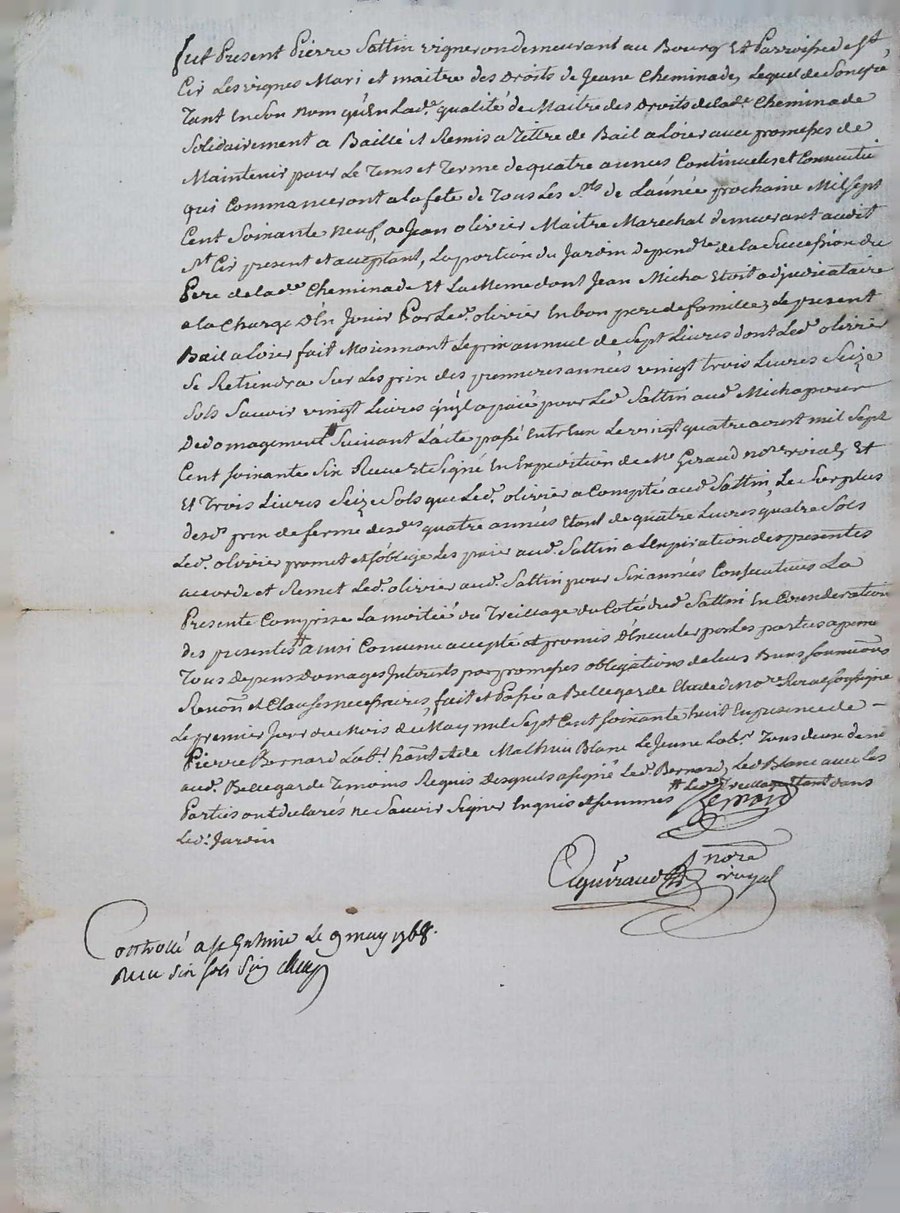 fut Present Pierre Sattin vigneron demeurant au Bourg Et Parroisse de St
Cir Les vignes Mari et maitre des Droits de Jeane Cheminade, Lequel de Son gré
Tant En Son Nom qu'En Lad. qualité de Maitre des Droits de lad. Cheminade
Solidairement a Baillé & Remis a Tittre de Bail a Loier avec promesses de
Maintenir pour Le Tems et Terme de quatre années Continuelles et
qui Commanceront a la fete de Tous Les Sts de L'année prochaine Mil Sept
Cent Soixante Neuf, a Jean olivier Maitre Marechal demeurant audit
St Cir present et acceptant, La portion du Jardin dependte de la Succession du
Pere de lad. Cheminade Et La Meme dont Jean Micha Etoit adjudicataire
a la Charge d'En Jouir Par Led. olivier En bon pere de famille, Le present
Bail a Loier fait Moiennant Le prix annuel de Sept Livres dont Led. olivier
Se Retiendra Sur Les prix des premieres années vingt Trois Livres Seize
Sols Sauoir vingt Livres qu'il a paié pour Led. Sattin aud. Micha pour un
Dedomagement Suivant L'acte passé Entre Eux Le vingt quatre aoust mil Sept
Cent Soixante Six Receu & Signé En Expedition de Me Giraud nore roial, Et
Et Trois Livres Seize Sols que Led. olivier a Compté aud. Sattin, Le Surplus
desd. prix de ferme desd. quatre années Etant de quatre Livres quatre Sols
Led. olivier promet et s'oblige Les paier aud. Sattin a L'Expiration des presentes
accorde et Remet Led. olivier aud. Sattin pour Six années Consecutives La
Presente Comprise La moitié du Treillage du Coté dud. Sattin En Consideration
des presentes # ainsi Convenu accepté et promis d'Executer par Les parties a peine
Tous depens Domages Interets par promesses obligations de leurs Biens soumissions
Renon. et Clauses necessaires, fait et Passé a Bellegarde Etude du Nore Roial soussigné
Le premier Jour du Mois de May mil Sept Cent Soixante huit En presence de
Pierre Bernard Labr. hant & de Mathieu Blanc Le Jeune Labr. Tous deux de
aud. Bellegarde Temoins Requis Desquels a signé Led. Bernard, Led. Blanc avec Les
Parties ont declarés ne Sauoir Signer Enquis et sommés # Led. Treillage Etant dans
Led. Jardin
Bernard
Giraud nore
royal
Controllé a St Galmier Le 9 may 1768.
Receu Six sols Six